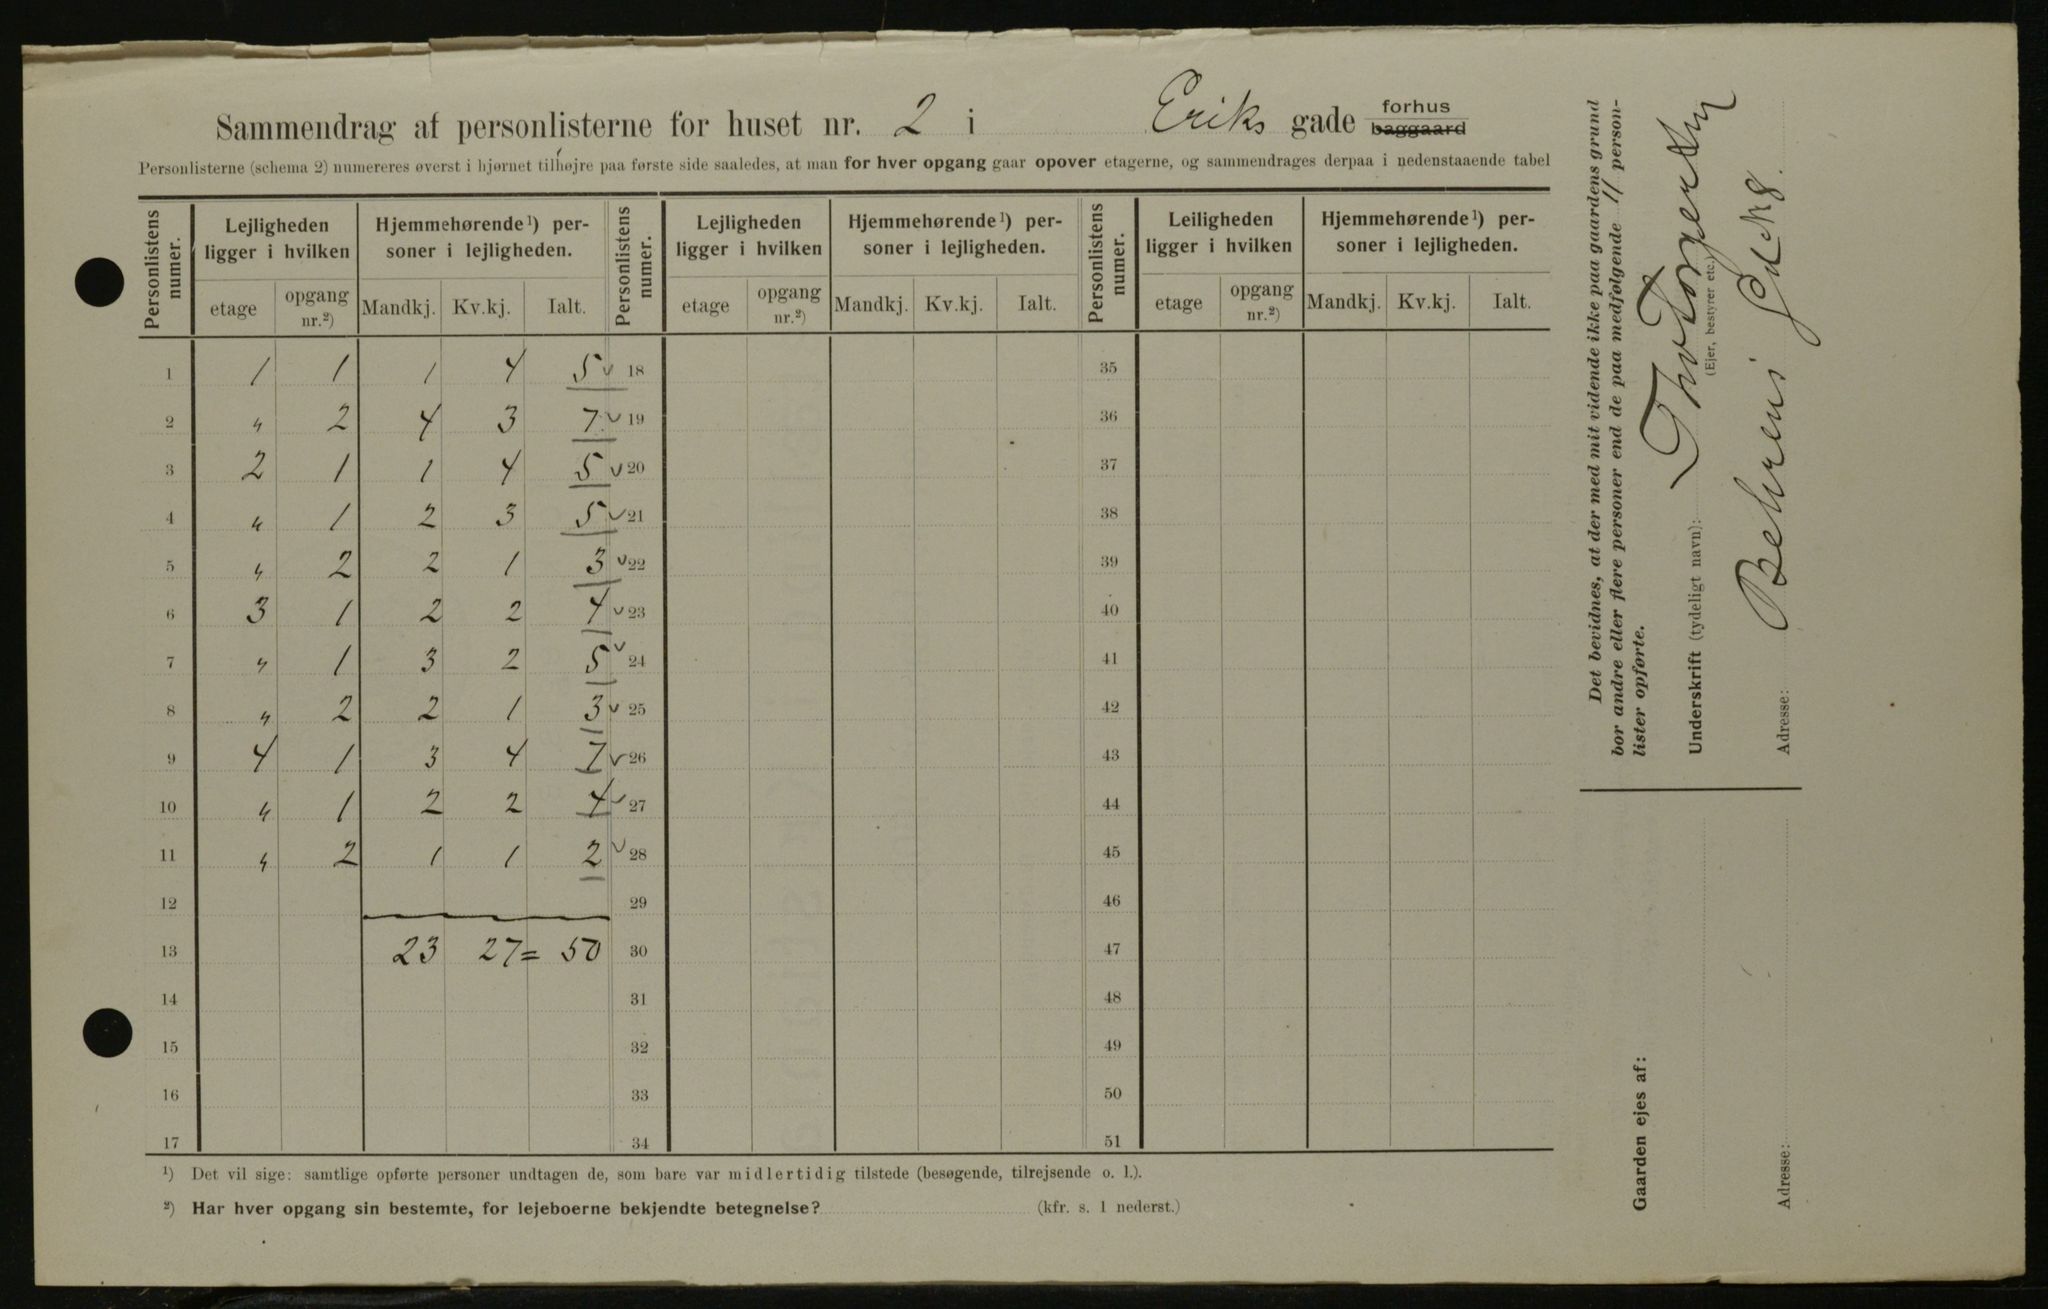 Sammendrag af personlisterne for huset nr. 2 i Eriks gade forhus baggaard
Personlisterne (schema 2) numereres øverst i hjørnet tilhøjre paa første side saaledes, at man for hver opgang gaar opover etagerne, og sammendrages derpaa i nedenstaaende tabel
Personlistens numer.
Lejligheden ligger i hvilken
Hjemmehørende¹) personer i lejligheden.
etage opgang nr.²) Mandkj. Kv.kj. Ialt.
Personlistens numer.
Lejligheden ligger i hvilken
Hjemmehørende¹) personer i lejligheden.
etage opgang nr.²) Mandkj. Kv.kj. Ialt.
Personlistens numer.
Leiligheden ligger i hvilken
Hjemmehørende¹) personer i lejligheden.
etage opgang nr.²) Mandkj. Kv.kj. Ialt.
1 1 1 1 4 5 18 35
2 " 2 4 3 7 19 36
3 2 1 1 4 5 20 37
4 " 1 2 3 5 21 38
5 " 2 2 1 3 22 39
6 3 1 2 2 4 23 40
7 " 1 3 2 5 24 41
8 " 2 2 1 3 25 42
9 4 1 3 4 7 26 43
10 " 1 2 2 4 27 44
11 " 2 1 1 2 28 45
12 29 46
13 23 27 = 50 30 47
14 31 48
15 32 49
16 33 50
17 34 51
¹) Det vil sige: samtlige opførte personer undtagen de, som bare var midlertidig tilstede (besøgende, tilrejsende o. l.).
²) Har hver opgang sin bestemte, for lejeboerne bekjendte betegnelse? (kfr. s. 1 nederst.)
Det bevidnes, at der med mit vidende ikke paa gaardens grund
bor andre eller flere personer end de paa medfølgende 11 person-
lister opførte.
Underskrift (tydeligt navn):
(Ejer, bestyrer etc.)
Adresse: Behrens Gd No 8.
Gaarden ejes af:
Adresse: